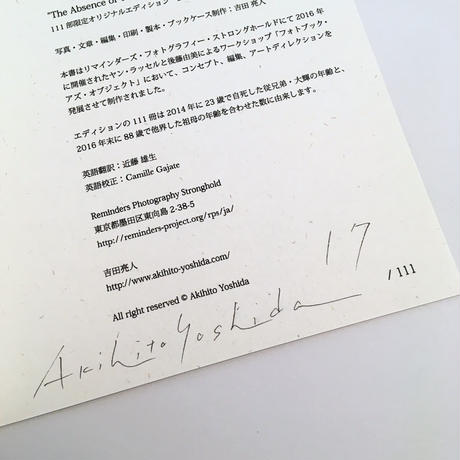 "The Absence of
111部限定オリジナルエディション
写真・文章・編集・印刷・製本・ブックケース制作：吉田亮人
本書はリマインダーズ・フォトグラフィー・ストロングホールドにて2016年
に開催されたヤン・ラッセルと後藤由美によるワークショップ「フォトブック・
アズ・オブジェクト」において、コンセプト、編集、アートディレクションを
発展させて制作されました。
エディションの111冊は2014年に23歳で自死した従兄弟・大輝の年齢と、
2016年末に88歳で他界した祖母の年齢を合わせた数に由来します。
英語翻訳：近藤 雄生
英語校正：Camille Gajate
Reminders Photography Stronghold
東京都墨田区東向島2-38-5
http://reminders-project.org/rps/ja/
吉田亮人
http://www.akihito-yoshida.com/
All right reserved © Akihito Yoshida
17 / 111
Akihito Yoshida